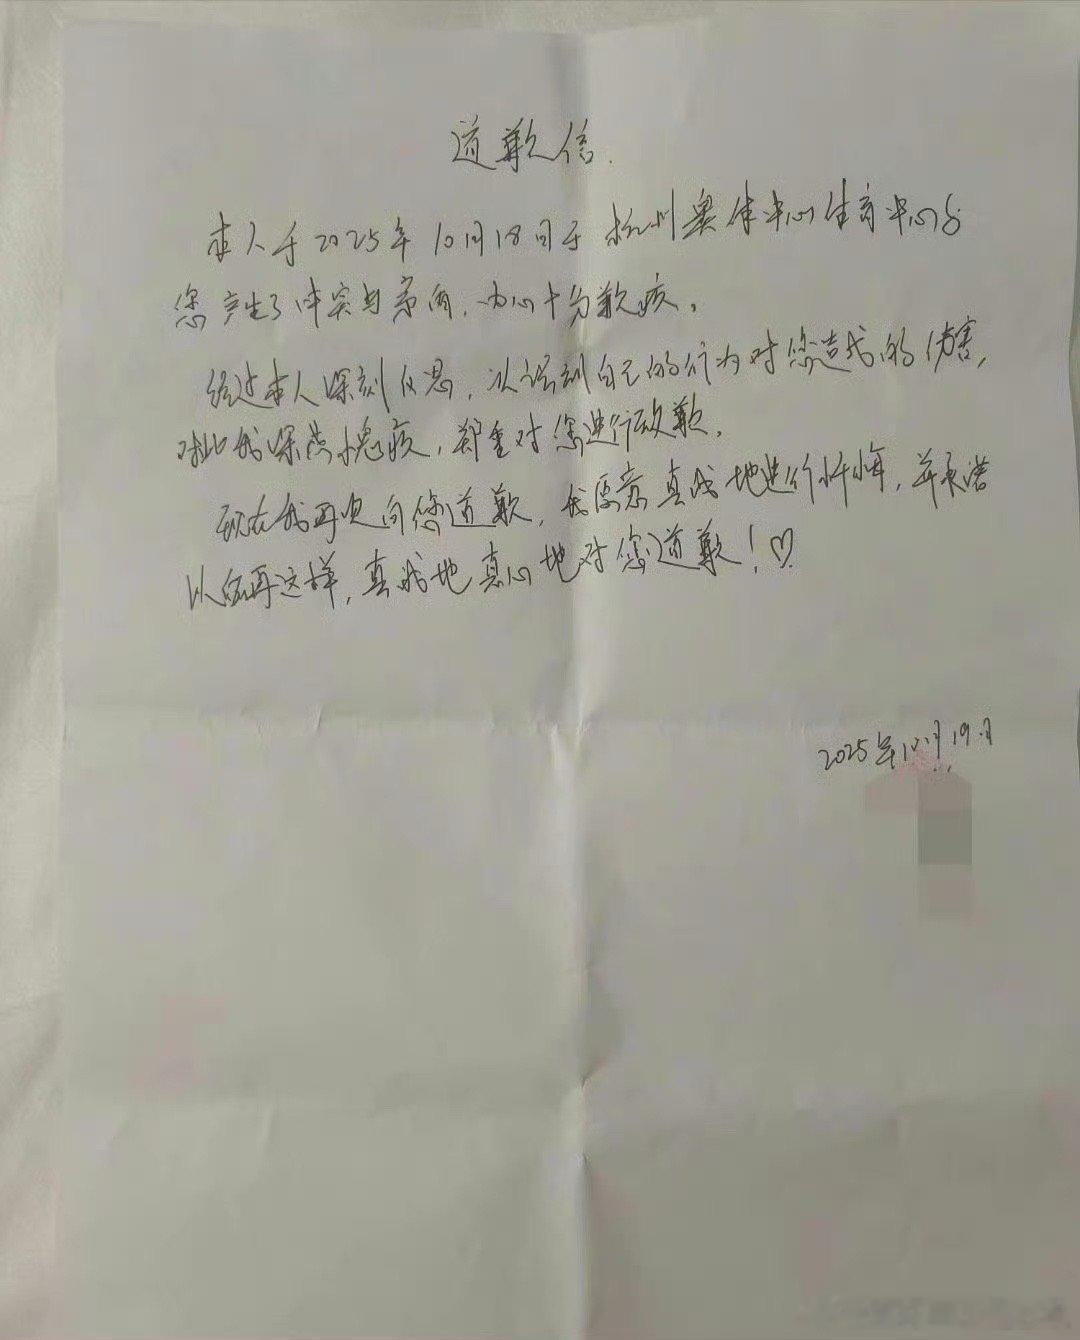 道歉信.
本人于2025年10月18日于杭州奥体中心体育中心与
您产生了冲突与矛盾，内心十分歉疚。
经过本人深刻反思，认识到自己的行为对您造成的伤害，
对此我深感愧疚，郑重对您进行致歉。
现在我再次向您道歉，我愿意真诚地进行忏悔，并承诺
以后再这样，真诚地真心地对您道歉！♡
2025年10月19日